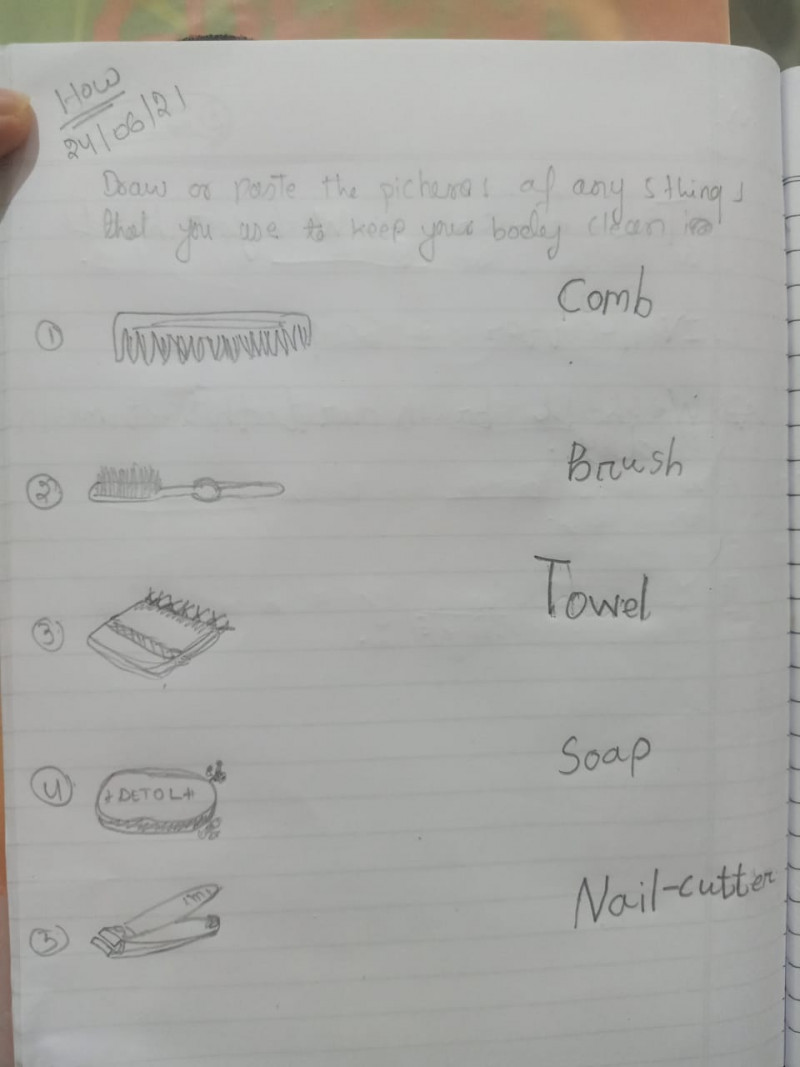 How
24/06/21
Draw or paste the pictures of any 5 things
that you use to keep your body clean
① Comb
② Brush
③ Towel
④ +DETOL+
Soap
⑤ Nail-cutter